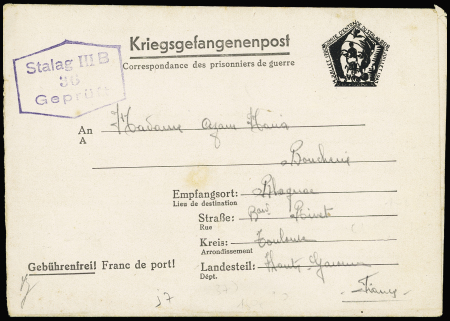 Kriegsgefangenenpost
Correspondance des prisonniers de guerre
Stalag III B
36
Geprüft
An Madame Azam Maria
A
Boucherie
Empfangsort: Blagnac
Lieu de destination
Straße:
Rue
Kreis: Toulouse
Arrondissement
Gebührenfrei! Franc de port! Landesteil: Haute Garonne
Dépt.
France